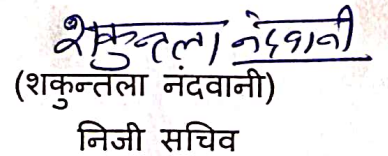 शकुन्तला नंदवानी
(शकुन्तला नंदवानी)
निजी सचिव